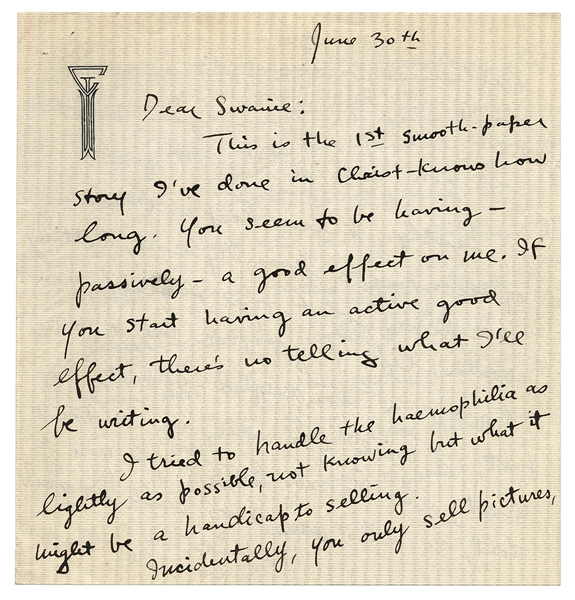 June 30th
Dear Swanie:
This is the 1st smooth-paper
story I've done in Christ-knows how
long. You seem to be having –
passively – a good effect on me. If
you start having an active good
effect, there's no telling what I'll
be writing.
I tried to handle the haemophilia as
lightly as possible, not knowing but what it
might be a handicap to selling.
Incidentally, you only sell pictures,